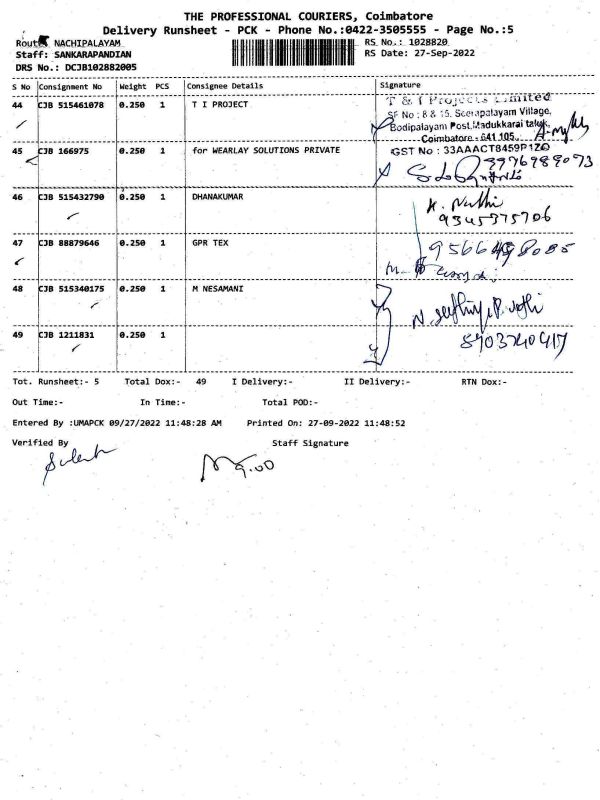 THE PROFESSIONAL COURIERS, Coimbatore
Delivery Runsheet - PCK - Phone No.:0422-3505555 - Page No.:5
Route: NACHIPALAYAM
RS No.: 1028820
Staff: SANKARAPANDIAN
RS Date: 27-Sep-2022
DRS No.: DCJB102882005
S No Consignment No Weight PCS Consignee Details Signature
44 CJB 515461078 0.250 1 T I PROJECT
T & I Projects Limited
SF No : 8 & 15, Seerapalayam Village,
Bodipalayam Post, Madukkarai taluk,
Coimbatore - 641 105.
GST No : 33AAACT8459P1ZO
45 CJB 166975 0.250 1 for WEARLAY SOLUTIONS PRIVATE
9976989073
46 CJB 515432790 0.250 1 DHANAKUMAR
9345375706
47 CJB 88879646 0.250 1 GPR TEX
48 CJB 515340175 0.250 1 M NESAMANI
49 CJB 1211831 0.250 1
8903740417
Tot. Runsheet:- 5 Total Dox:- 49 I Delivery:- II Delivery:- RTN Dox:-
Out Time:- In Time:- Total POD:-
Entered By :UMAPCK 09/27/2022 11:48:28 AM Printed On: 27-09-2022 11:48:52
Verified By Staff Signature